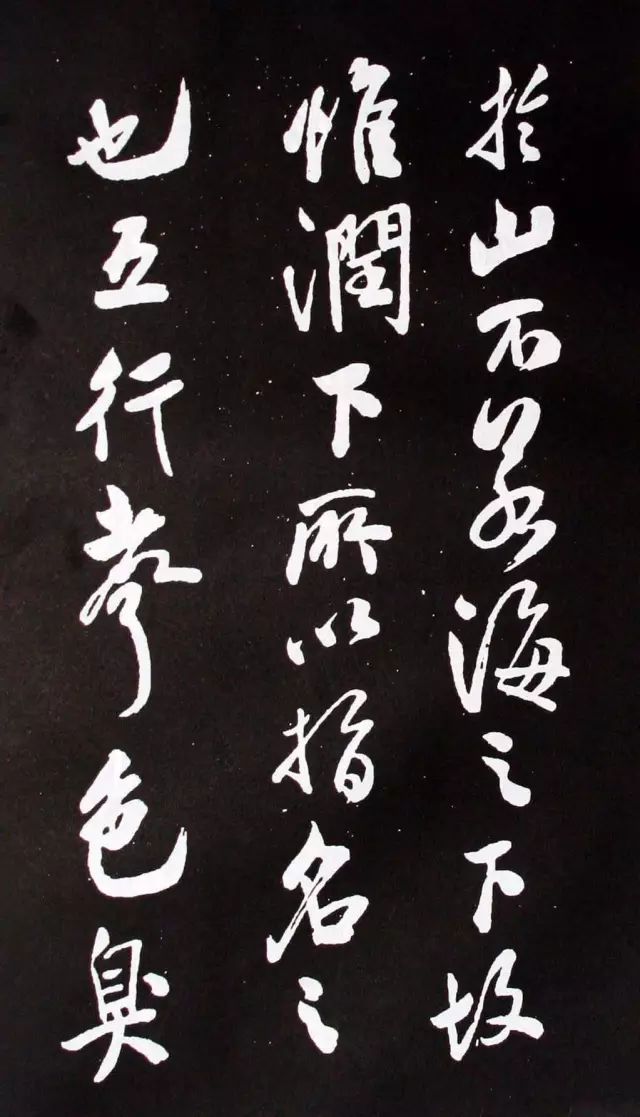 於山不若海之下故
惟潤下所以指名之
也五行聲色臭